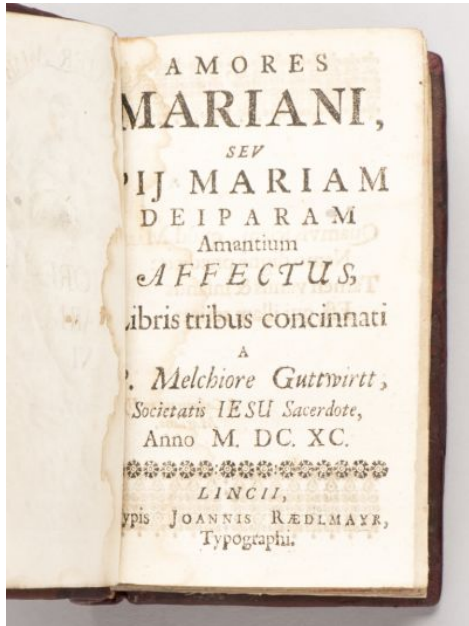 AMORES
MARIANI,
SEV
PIJ MARIAM
DEIPARAM
Amantium
AFFECTUS,
Libris tribus concinnati
A
P. Melchiore Guttwirtt,
Societatis IESU Sacerdote,
Anno M. DC. XC.
LINCII,
Typis JOANNIS RÆDLMAYR,
Typographi.